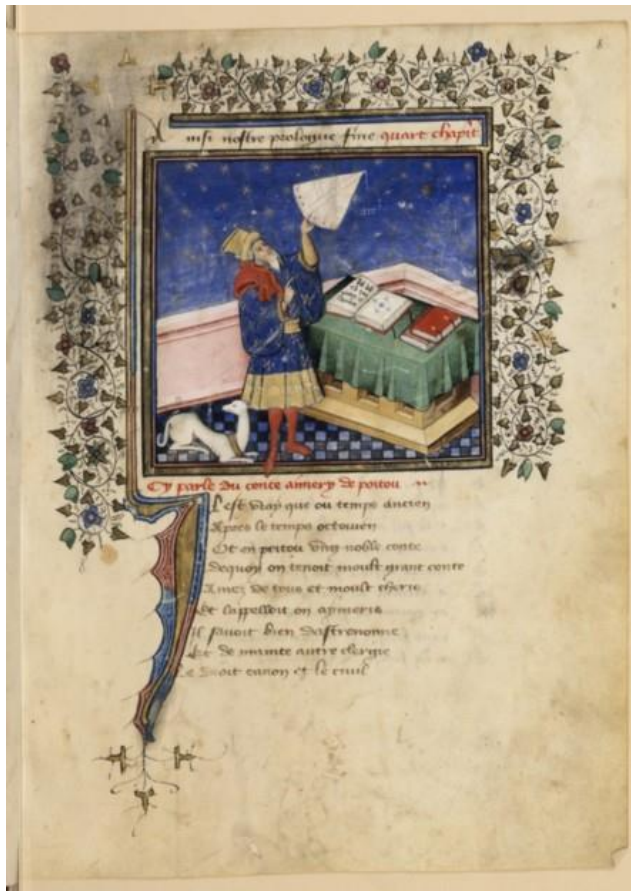 Ainsi nostre prologue fine quart chapit
Cy parle du conte aimery de poitou
Il est vray que ou temps ancien
Apres le temps octouien
Ot en poitou vng noble conte
Dequoy on tenoit moult grant conte
Amez de tous et moult chery
Et lappelloit on aymeris
Il sauoit bien dastronomie
Et de mainte autre clergie
Le droit canon et le ciuil